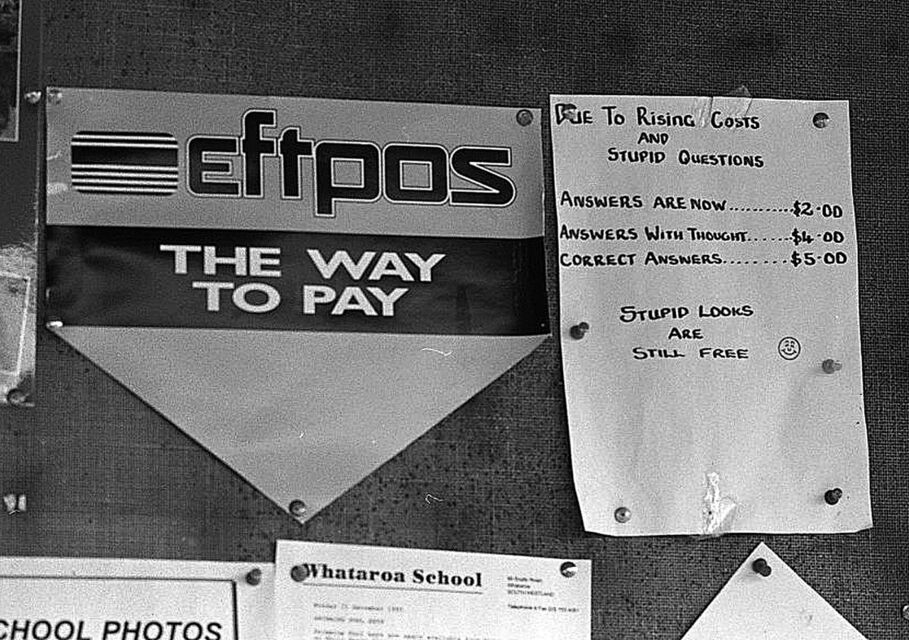 eftpos
THE WAY
TO PAY
DUE TO RISING COSTS
AND
STUPID QUESTIONS
ANSWERS ARE NOW..........$2.00
ANSWERS WITH THOUGHT......$4.00
CORRECT ANSWERS........$5.00
STUPID LOOKS
ARE
STILL FREE
Whataroa School
Whataroa
SOUTH WESTLAND
CHOOL PHOTOS